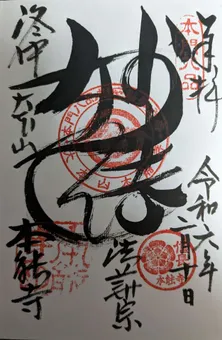 奉拝
本門八品
令和六年
二月十日
妙法
法華宗
洛中
大本山
本能寺
本能寺